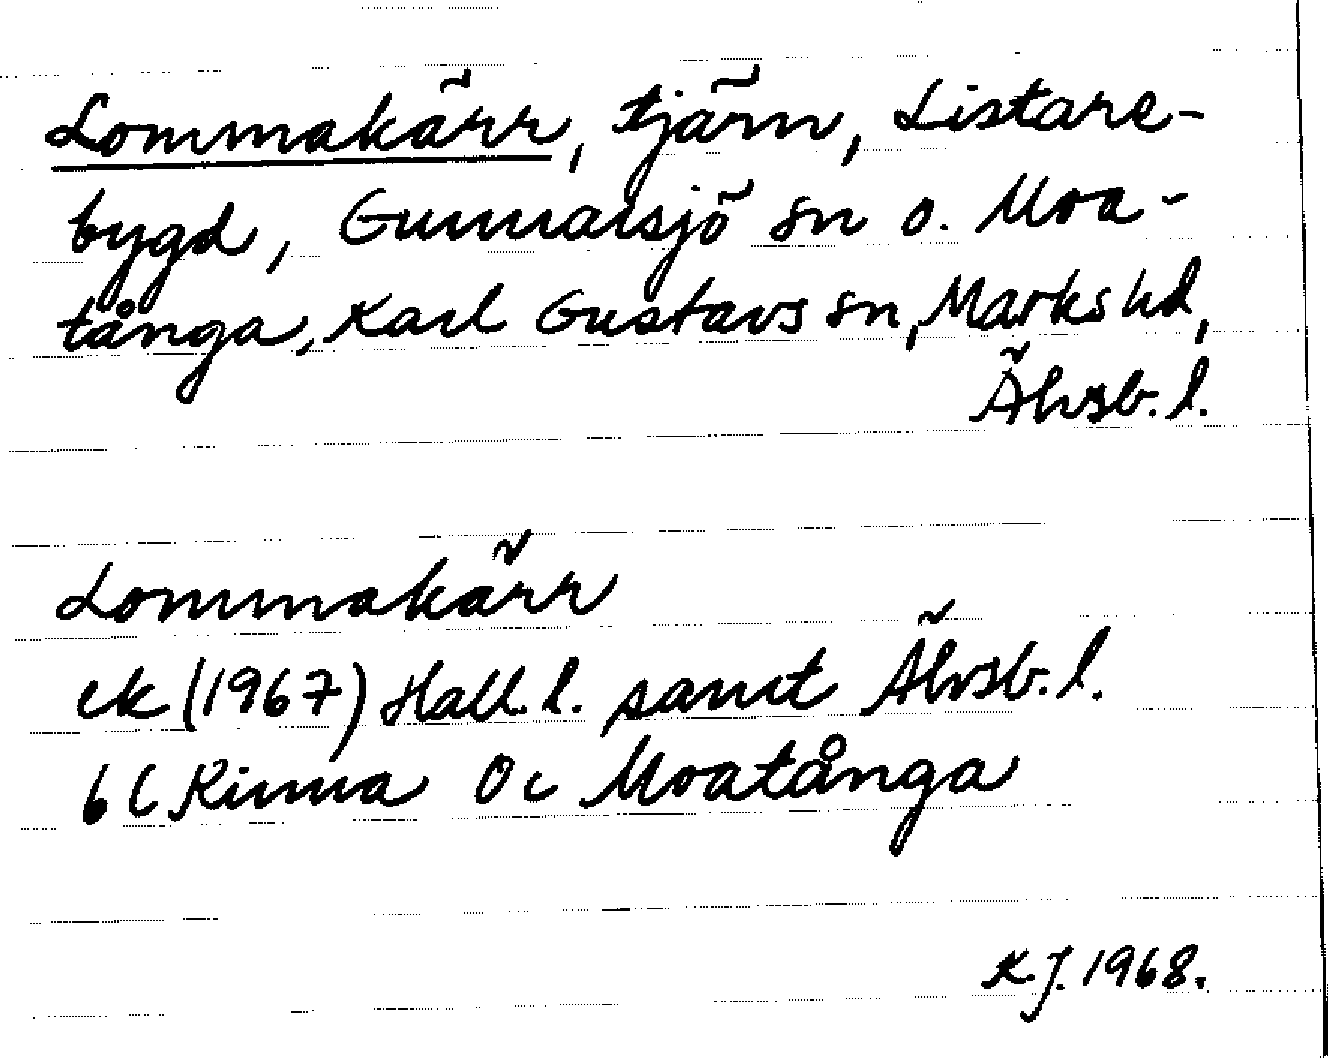 Lommakärr, tjärn, Listare-
bygd, Gunnarsjö sn o. Moa-
tånga, Karl Gustavs sn, Marks hd,
Älvsb. l.
Lommakärr
ek (1967) Hall. l. samt Älvsb. l.
6C Kinna 0c Moatånga
K.J. 1968.